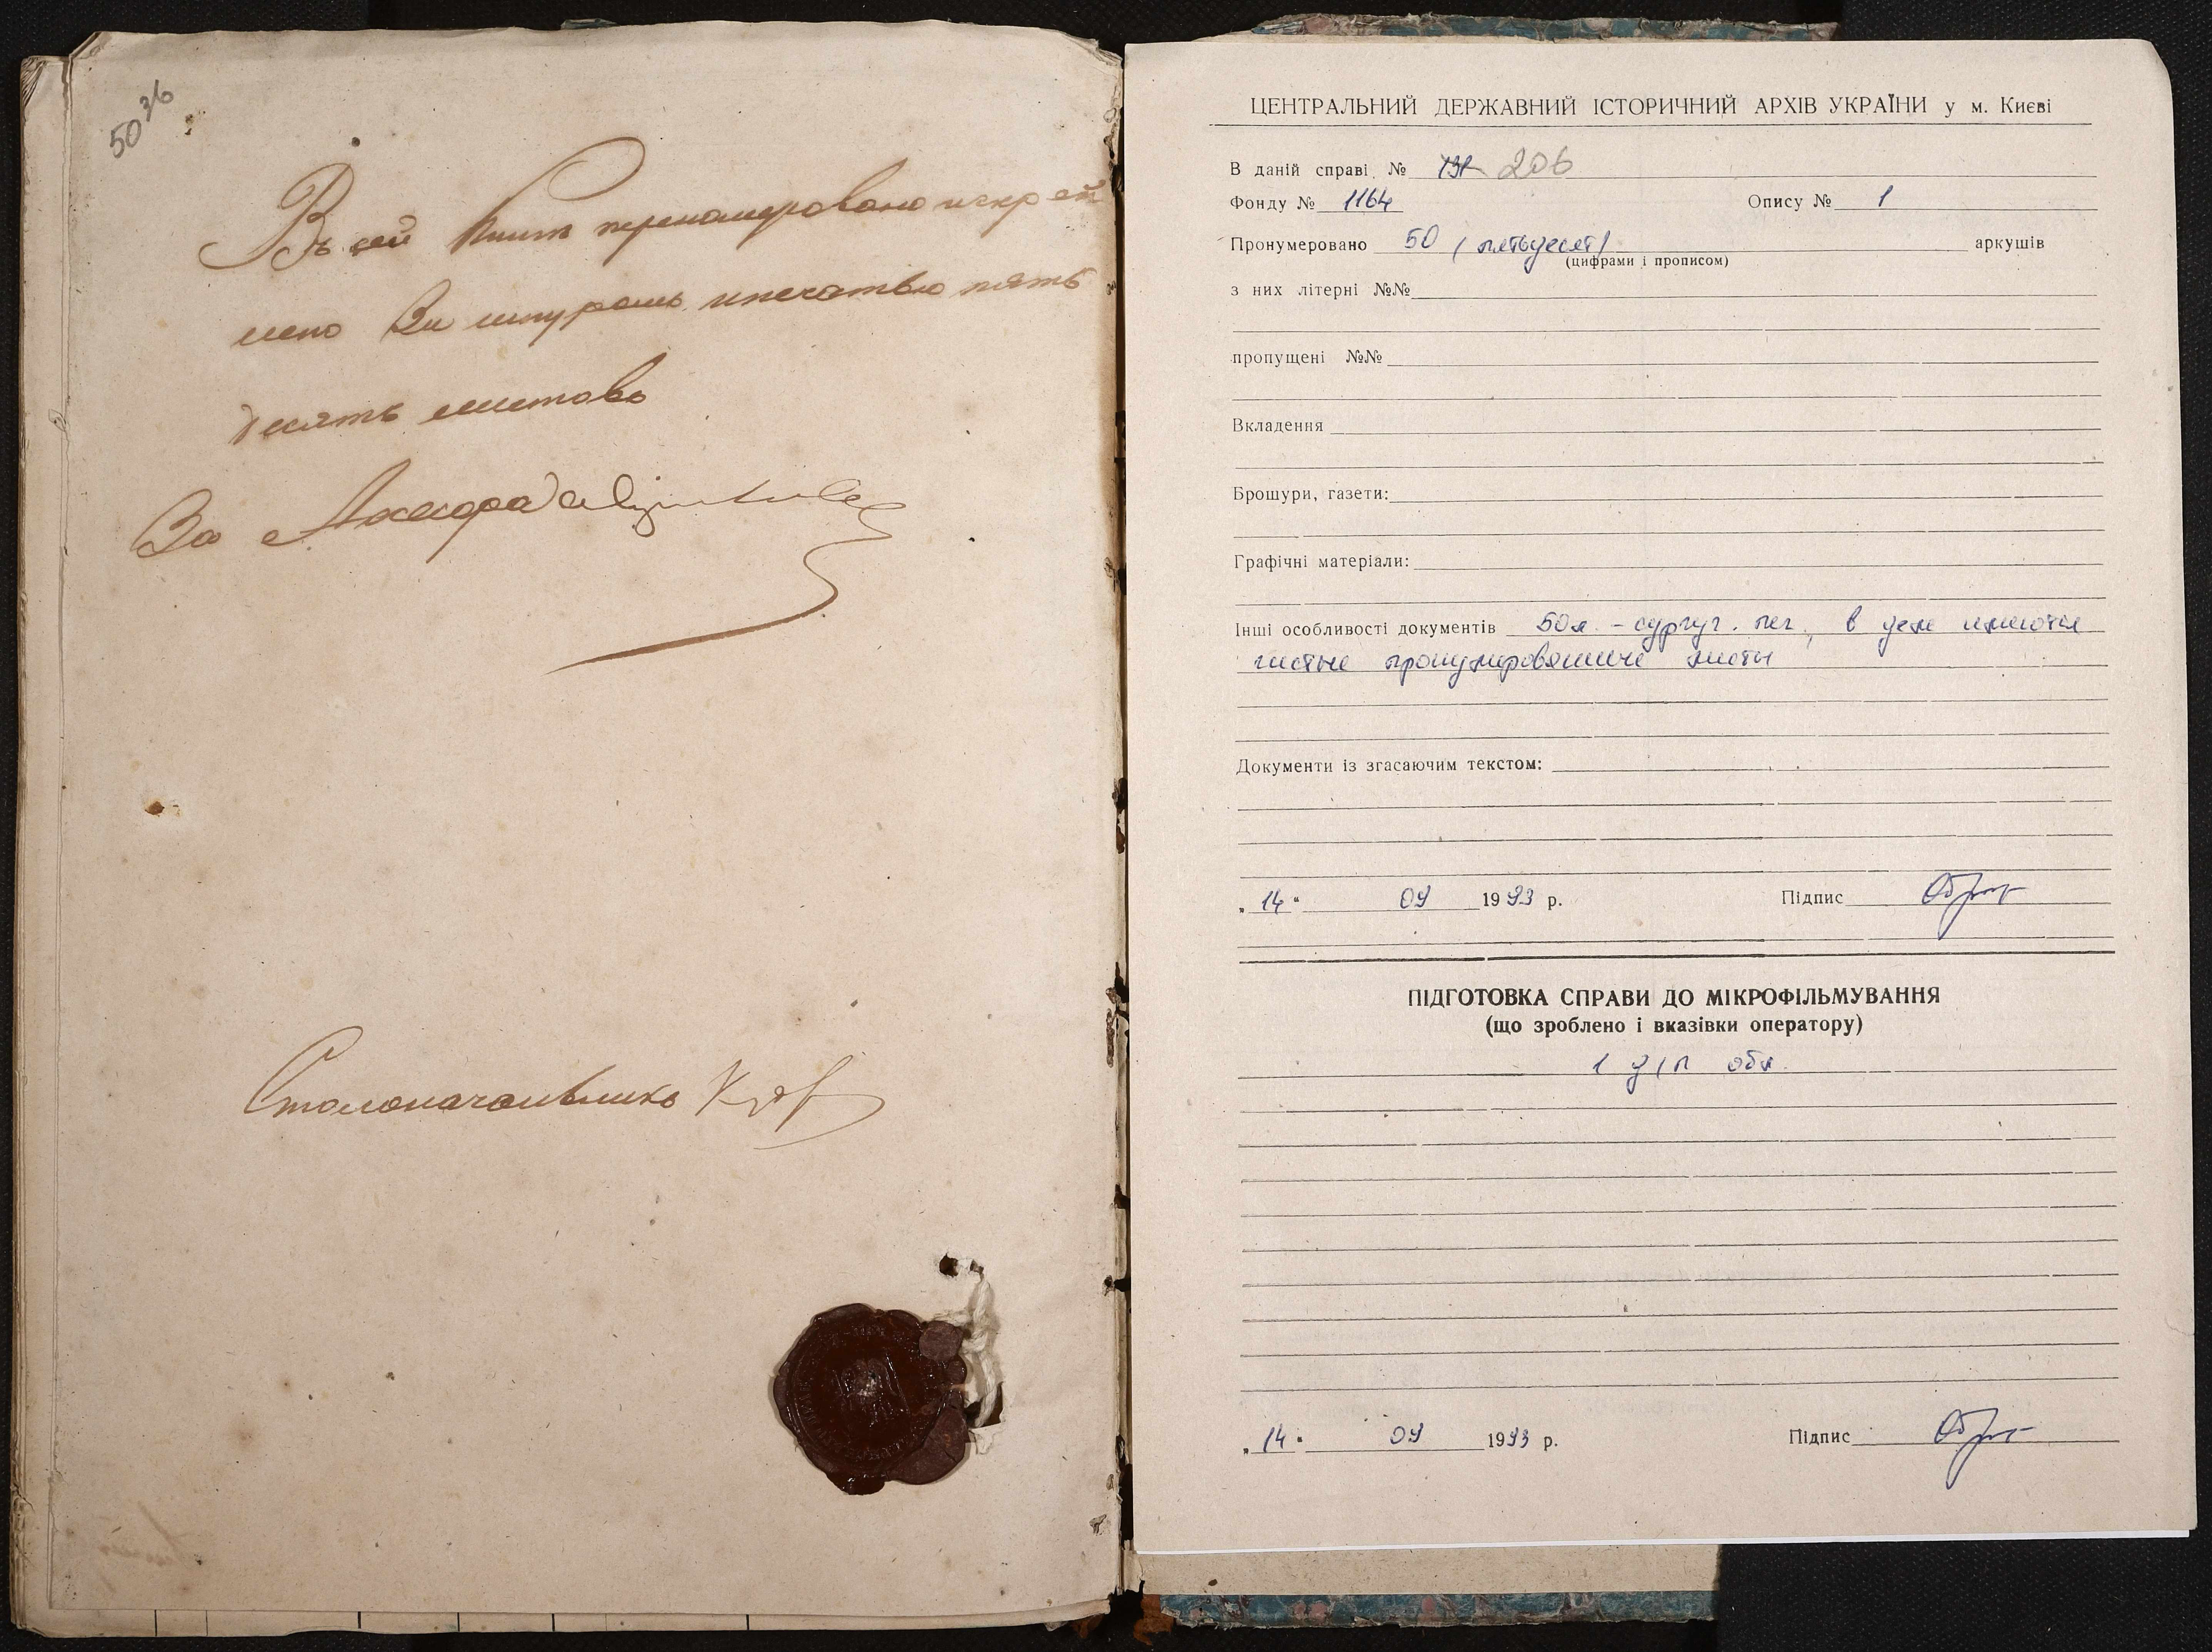 50 36
Въ сей Книге перенумеровано и скреп
лено За шнуромъ и печатью пять
десять листовъ
За Асесора
Столоначальникъ
ЦЕНТРАЛЬНИЙ ДЕРЖАВНИЙ ІСТОРИЧНИЙ АРХІВ УКРАЇНИ у м. Києві
В даній справі № 206
Фонду № 1164 Опису № 1
Пронумеровано 50 (пятьдесят) аркушів
(цифрами і прописом)
з них літерні №№
пропущені №№
Вкладення
Брошури, газети:
Графічні матеріали:
Інші особливості документів 50 л. - сургуч. печ., в деле имеются
чистые пронумерованные листы
Документи із згасаючим текстом:
„ 14 “ 09 1993 р. Підпис
ПІДГОТОВКА СПРАВИ ДО МІКРОФІЛЬМУВАННЯ
(що зроблено і вказівки оператору)
1 д/п обл.
„ 14 “ 09 1993 р. Підпис